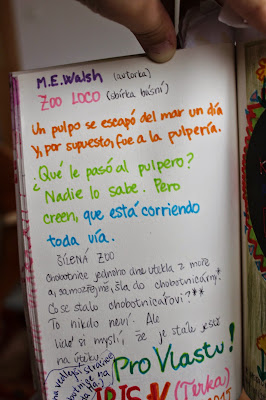 M.E.Walsh (autorka)
ZOO LOCO (sbírka básní)
Un pulpo se escapó del mar un día
Y, por supuesto, fue a la pulpería.
¿Qué le pasó al pulpero?
Nadie lo sabe. Pero
creen, que está corriendo
toda vía.
ŠÍLENÁ ZOO
Chobotnice jednoho dne utekla z moře
a, samozřejmě, šla do chobotnicárny*
Co se stalo chobotnicařovi?**
To nikdo neví. Ale
lidé si myslí, že je stále ještě
na útěku.
Pro Vlastu!
(Terka)
2015